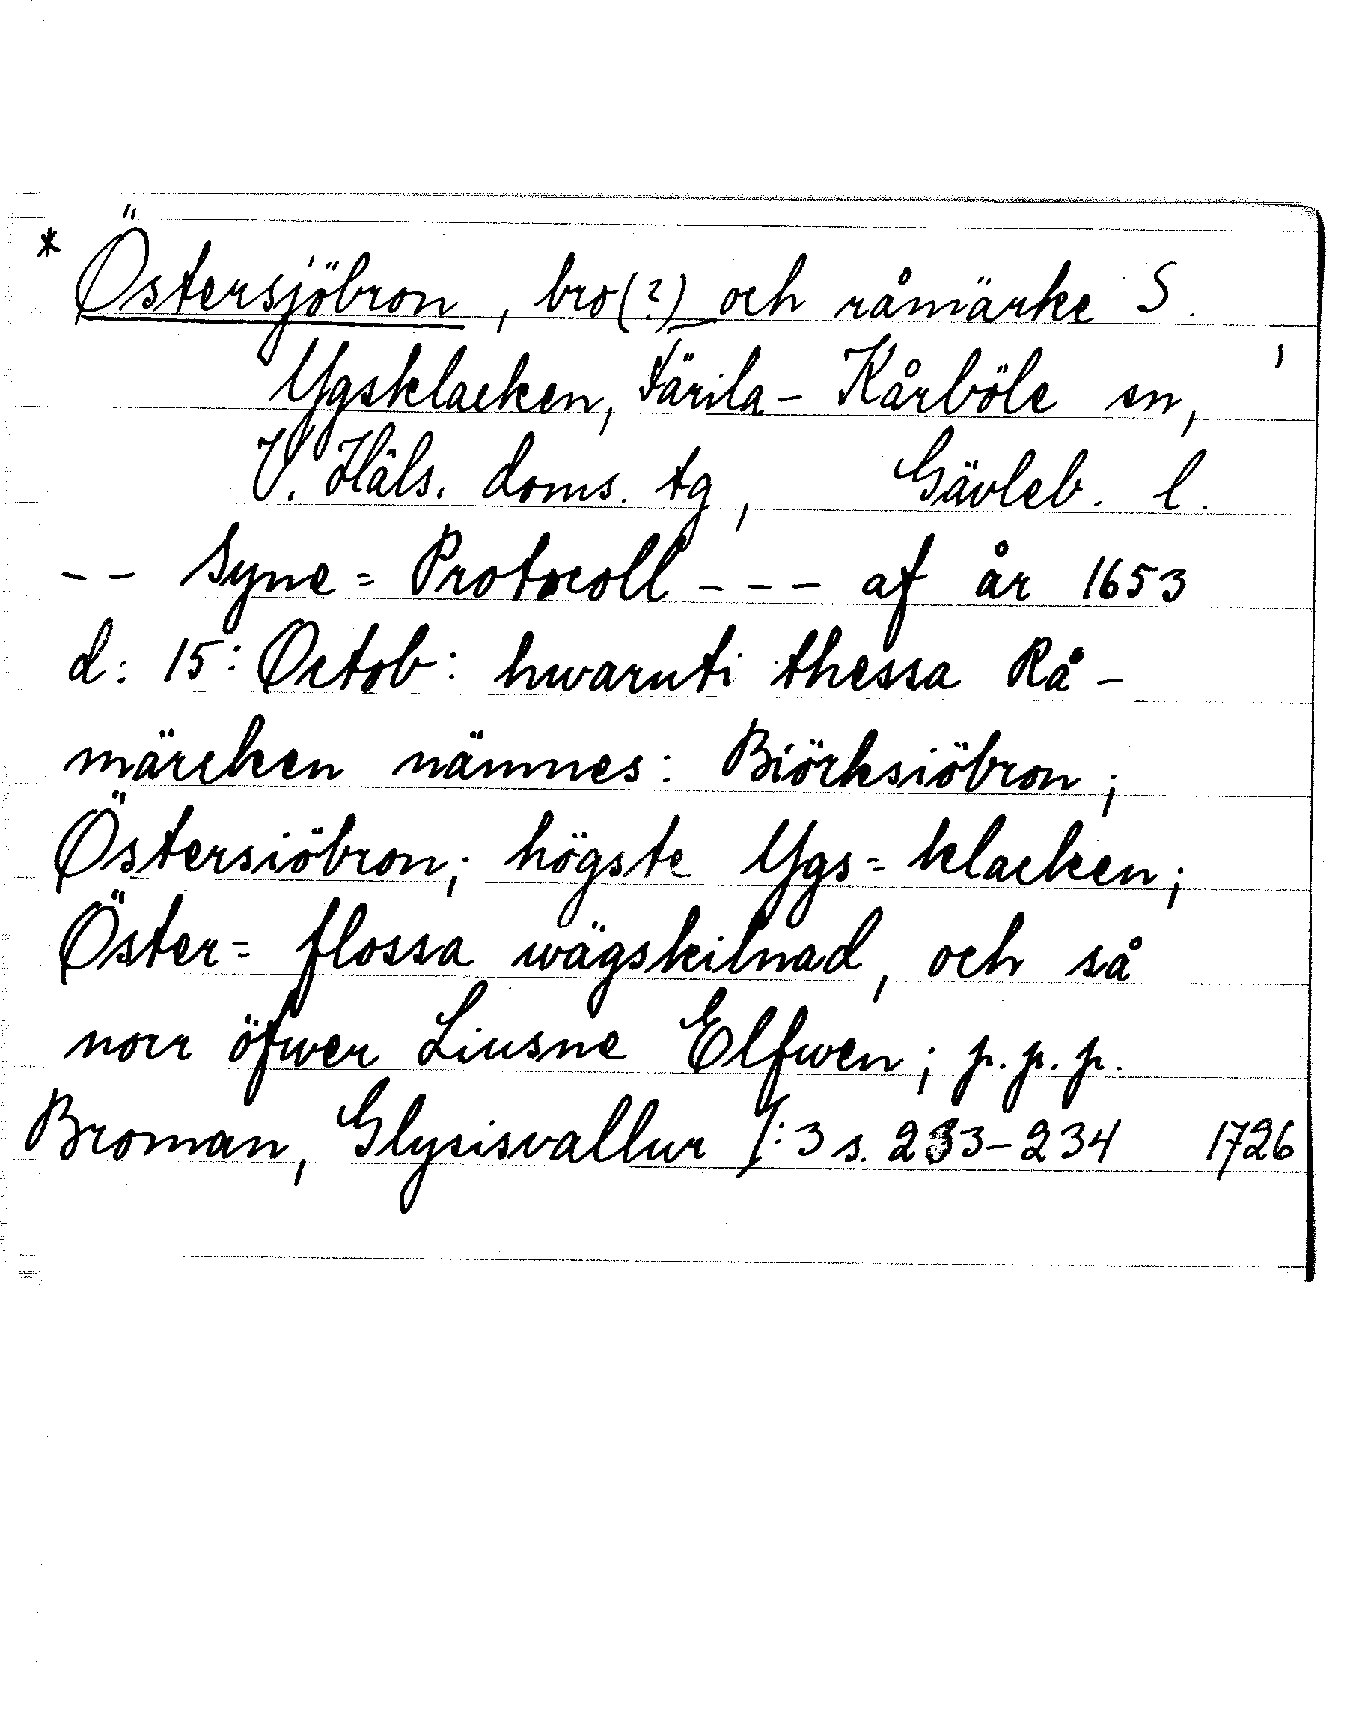 * Östersjöbron, bro(?) och råmärke S.
Ygsklacken, Färila-Kårböle sn,
V. Häls. doms. tg, Gävleb. l.
-- Syne=Protocoll --- af år 1653
d: 15: Octob: hwaruti thessa Rå-
märcken nämnes: Biörksiöbron;
Östersiöbron; högste Ygs=klacken;
Öster=flossa wägskilnad, och så
norr öfwer Liusne Elfwen; p.p.p.
Broman, Glysisvallur I:3 s. 233-234 1726